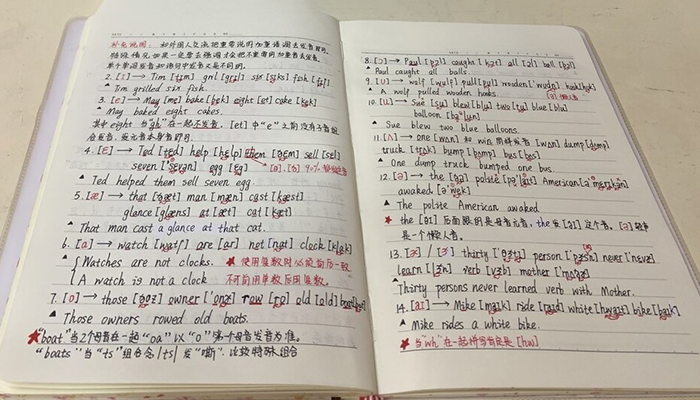 补充说明: 和外国人交流把重要说明加重语调去发音即可.
特殊情况如果一定要去强调才会把不重要的加重去发音.
单个单词发音和语句中发音又是不同的.
2. [ɪ] → Tim [tɪm] gril [grɪl] six [sɪks] fish [fɪʃ]
▲ Tim grilled six fish.
3. [e] → May [me] bake [bek] eight [et] cake [kek]
▲ May baked eight cakes.
其中eight 当"gh"在一起不发音. [et] 中 "e"
4. [ɛ] → Ted [tɛd] help [hɛlp] them [ðɛm] sell [sɛl]
seven ['sɛvən] egg [ɛg]
▲ Ted helped them sell seven egg.
5. [æ] → that [ðæt] man [mæn] cast [kæst]
glance [glæns] at [æt] cat [kæt]
▲ That man cast a glance at that cat.
6. [ɑ] → watch [wɑtʃ] are [ɑr] not [nɑt] clock [klɑk]
▲ { Watches are not clocks. ★ 使用复数时必须前后一致
{ A watch is not a clock 不可前用单数后用复数.
7. [o] → those [ðoz] owner ['onɚ] row [ro] old [old] boat
▲ Those owners rowed old boats.
★"boat"当2个母音在一起 "oa" 以 "o" 第一个母音发音为准.
"boats" 当 "ts" 组合念 /ts/ 发 "嘶". 比较特殊组合
8. [ɔ] → Paul [pɔl] caught [kɔt] all [ɔl] ball [bɔl]
▲ Paul caught all balls.
9. [ʊ] → wolf [wʊlf] pull [pʊl] wooden ['wʊdn] hook [hʊk]
▲ A wolf pulled wooden hooks.
10. [u] → Sue [su] blew [blu] two [tu] blue [blu]
balloon [bə'lun]
▲ Sue blew two blue balloons.
11. [ʌ] → one [wʌn] 和 win 同样发音 [wʌn] dump [dʌmp]
truck [trʌk] bump [bʌmp] bus [bʌs]
▲ One dump truck bumped one bus.
12. [ə] → the [ðə] polite [pə'laɪt] American [ə'mɛrɪkən]
awaked [ə'wek]
▲ The polite American awaked
★ the [ðɪ] 后面跟的是母音元音. the 发 [ðɪ] 这个音. [ə]
是一个懒人音.
13. [ɚ] / [ɝ] → thirty ['θɝtɪ] person ['pɝsn] never ['nɛvɚ]
learn [lɝn] verb [vɝb] mother ['mʌðɚ]
▲Thirty persons never learned verb with Mother.
14. [aɪ] → Mike [maɪk] ride [raɪd] white [hwaɪt] bike [baɪk]
▲ Mike rides a white bike.
★ 当"wh"在一起时 [hw]